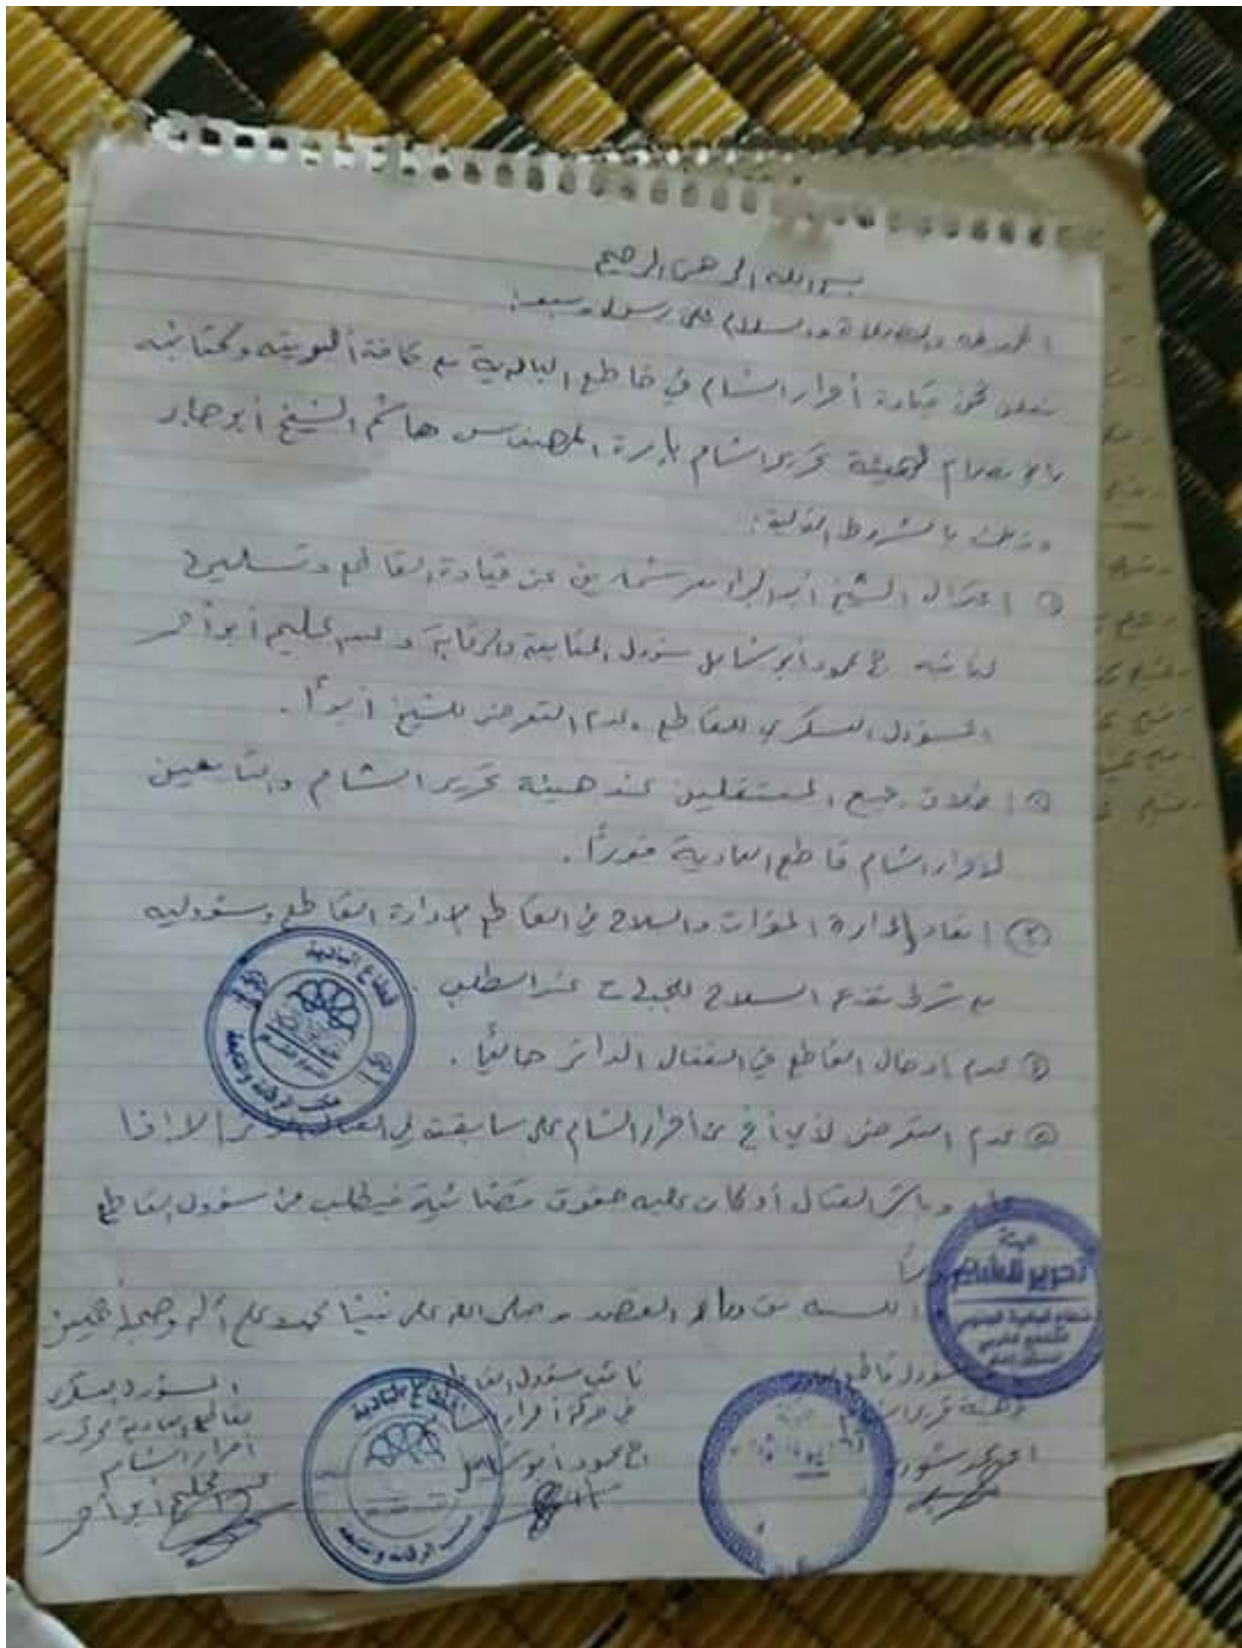 بسم الله الرحمن الرحيم
الحمد لله والصلاة والسلام على رسول الله وبعد:
نعلن نحن قيادة أحرار الشام في قاطع البادية مع كافة ألويته وكتائبه
بالانضمام لهيئة تحرير الشام بإمرة المهندس هاشم الشيخ أبو جابر
وذلك بالشروط التالية:
① اعتزال الشيخ أبو البراء معرشمارين عن قيادة القاطع وتسليمها
لنائبه ح محمود أبو شامل مسؤول المتابعة والرقابة وعبد الحليم أبو أحمر
المسؤول العسكري للقاطع وعدم التعرض للشيخ أبدًا.
② إطلاق جميع المعتقلين عند هيئة تحرير الشام والتابعين
لأحرار الشام قاطع البادية فورًا.
③ إبقاء إدارة المقرات والسلاح في القاطع لإدارة القاطع ومسؤوليه
مع شرط تقديم السلاح للجبهات عند الطلب.
④ عدم إدخال القاطع في القتال الدائر حاليًا.
⑤ عدم التعرض لأي أخ من أحرار الشام على سابقته في القتال الدائر إلا إذا
وباشر القتال أو كان عليه حقوق قضائية فيطلب من مسؤول القاطع
الله من وراء القصد وصلى الله على نبينا محمد وعلى آله وصحبه أجمعين
مسؤول قاطع
نائب مسؤول القاطع
المسؤول العسكري
هيئة تحرير
في حركة أحرار
لقاطع البادية
أحرار الشام
ح محمود أبو شامل
عبد الحليم أبو أحمر
قطاع البادية
مكتب الرقابة والمتابعة
هيئة
تحرير الشام
قطاع البادية
مكتب الرقابة والمتابعة